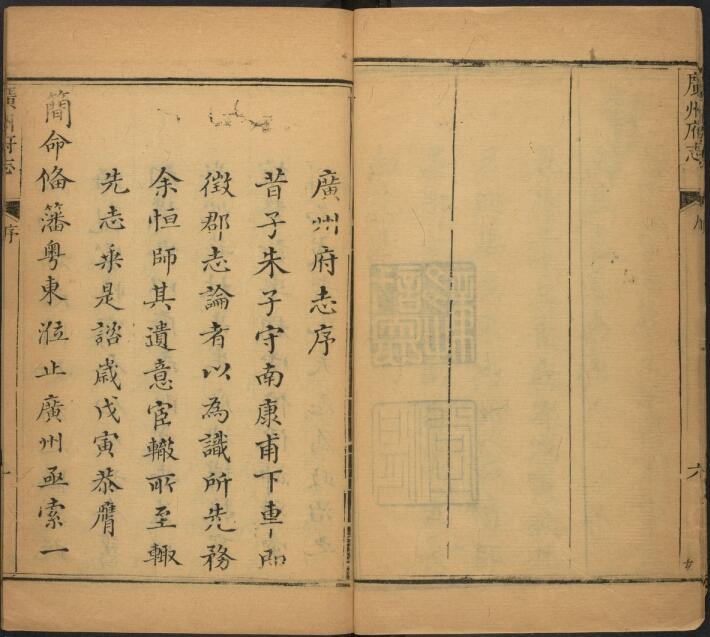 廣州府志
六
廣州府志序
昔子朱子守南康甫下車即
徵郡志論者以為識所先務
余恒師其遺意宦轍所至輙
先志乘是諮歲戊寅恭膺
簡命偹藩粵東涖止廣州亟索一
廣州府志
序